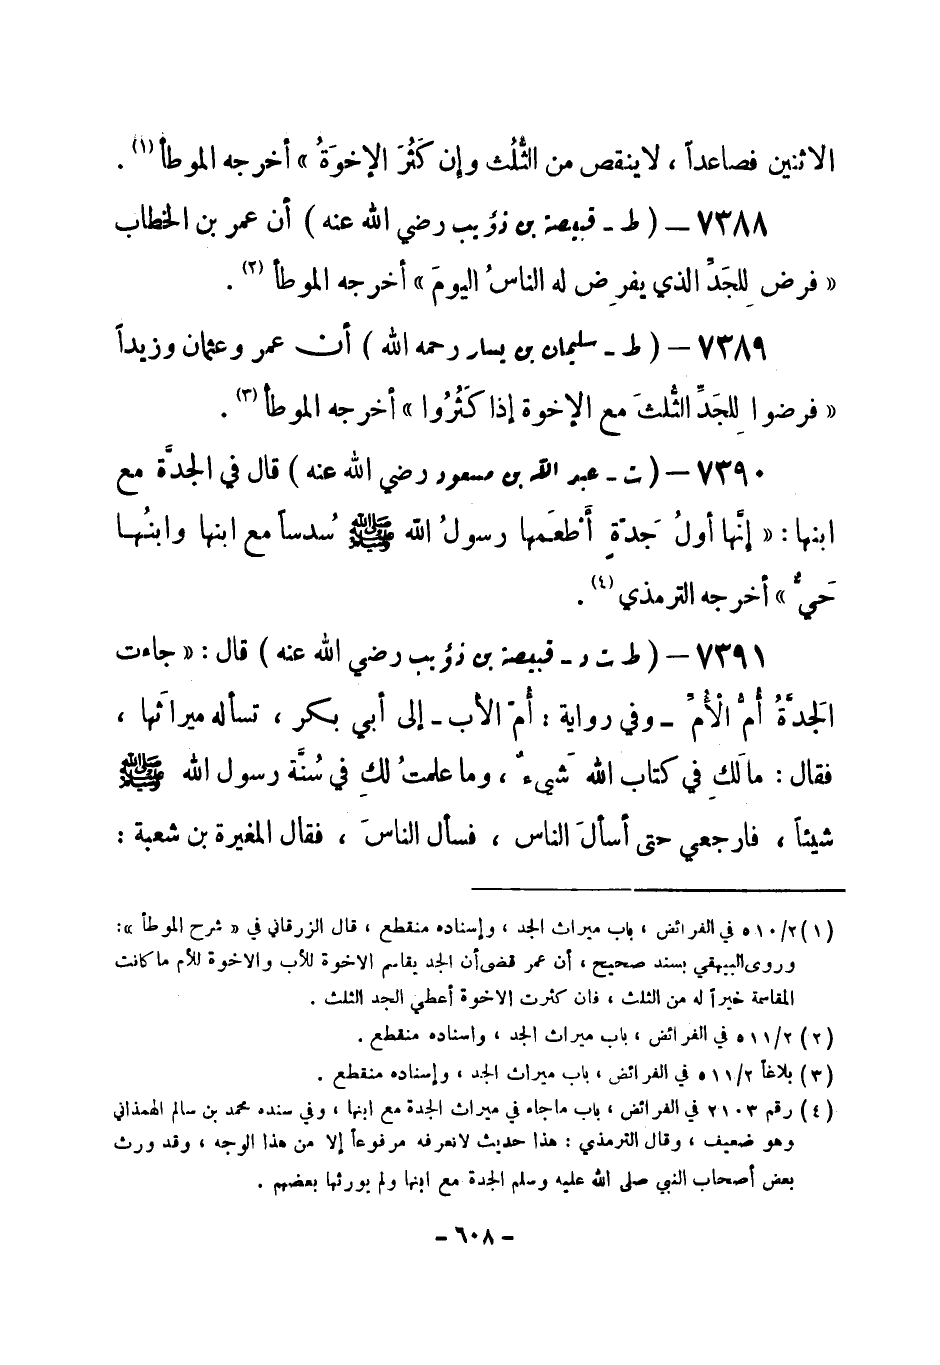 الاثنين فصاعداً ، لاينقص من الثُّلُث وإن كَثُرَ الإخوَةُ » أخرجه الموطأ (١) .
٧٣٨٨ – ( ط - قبيصة بن ذؤيب رضي الله عنه ) أن عمر بن الخطاب
« فرض لِلجَدِّ الذي يفرِض له الناسُ اليومَ » أخرجه الموطأ (٢) .
٧٣٨٩ – ( ط - سليمان بن يسار رحمه الله ) أن عمر وعثمان وزيداً
« فرضوا لِلجَدِّ الثُّلثَ مع الإخوة إذا كَثُرُوا » أخرجه الموطأ (٣) .
٧٣٩٠ – ( ت - عبد الله بن مسعود رضي الله عنه ) قال في الجدَّة مع
ابنها : « إنَّها أولُ جَدَّةٍ أَطعَمها رسولُ الله ﷺ سُدساً مع ابنها وابنُها
حَيٌّ » أخرجه الترمذي (٤) .
٧٣٩١ – ( ط ت د - قبيصة بن ذؤيب رضي الله عنه ) قال : « جاءت
الجَدَّةُ أُمُّ الْأُمِّ - وفي رواية : أُمّ الأب - إلى أبي بكر ، تسأله ميراثَها ،
فقال : مالَكِ في كتاب الله شَيءٌ ، وما علمتُ لكِ في سُنَّة رسول الله ﷺ
شيئاً ، فارجعي حتى أسألَ الناس ، فسأل الناسَ ، فقال المغيرة بن شعبة :
(١) ٥١٠/٢ في الفرائض ، باب ميراث الجد ، وإسناده منقطع ، قال الزرقاني في « شرح الموطأ » :
وروى البيهقي بسند صحيح ، أن عمر قضى أن الجد يقاسم الاخوة للأب والاخوة للأم ما كانت
المقاسمة خيراً له من الثلث ، فان كثرت الاخوة أعطي الجد الثلث .
(٢) ٥١١/٢ في الفرائض ، باب ميراث الجد ، واسناده منقطع .
(٣) بلاغاً ٥١١/٢ في الفرائض ، باب ميراث الجد ، وإسناده منقطع .
(٤) رقم ٢١٠٣ في الفرائض ، باب ماجاء في ميراث الجدة مع ابنها ، وفي سنده محمد بن سالم الهمذاني
وهو ضعيف ، وقال الترمذي : هذا حديث لانعرفه مرفوعاً إلا من هذا الوجه ، وقد ورث
بعض أصحاب النبي صلى الله عليه وسلم الجدة مع ابنها ولم يورثها بعضهم .
- ٦٠٨ -